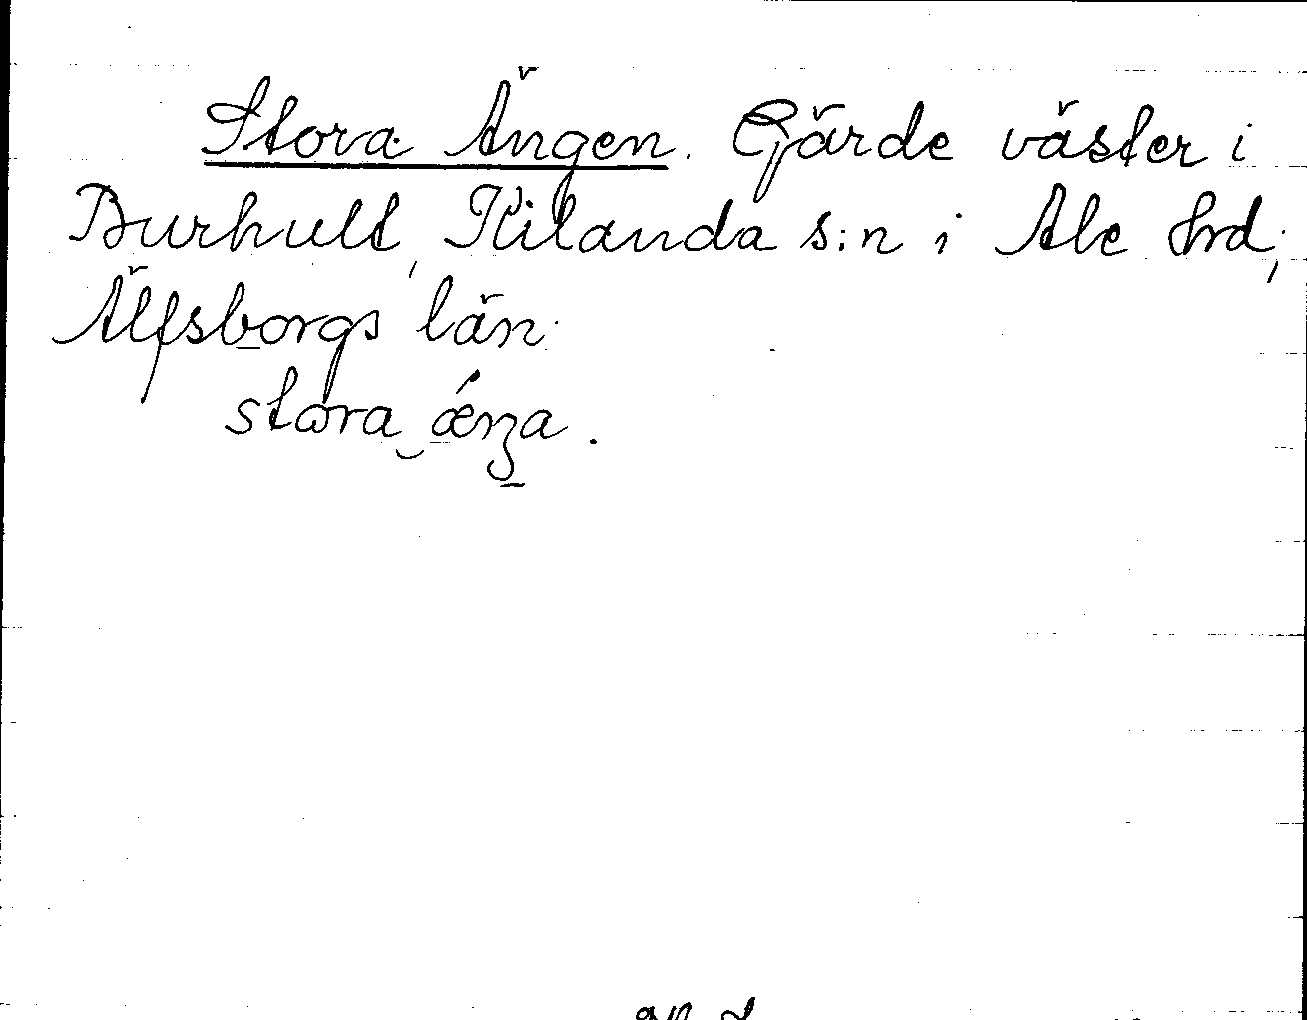 Stora Ängen. Gärde väster i
Burhult, Kilanda s:n i Ale Hrd,
Älfsborgs län.
stωra‿ǽŋa.